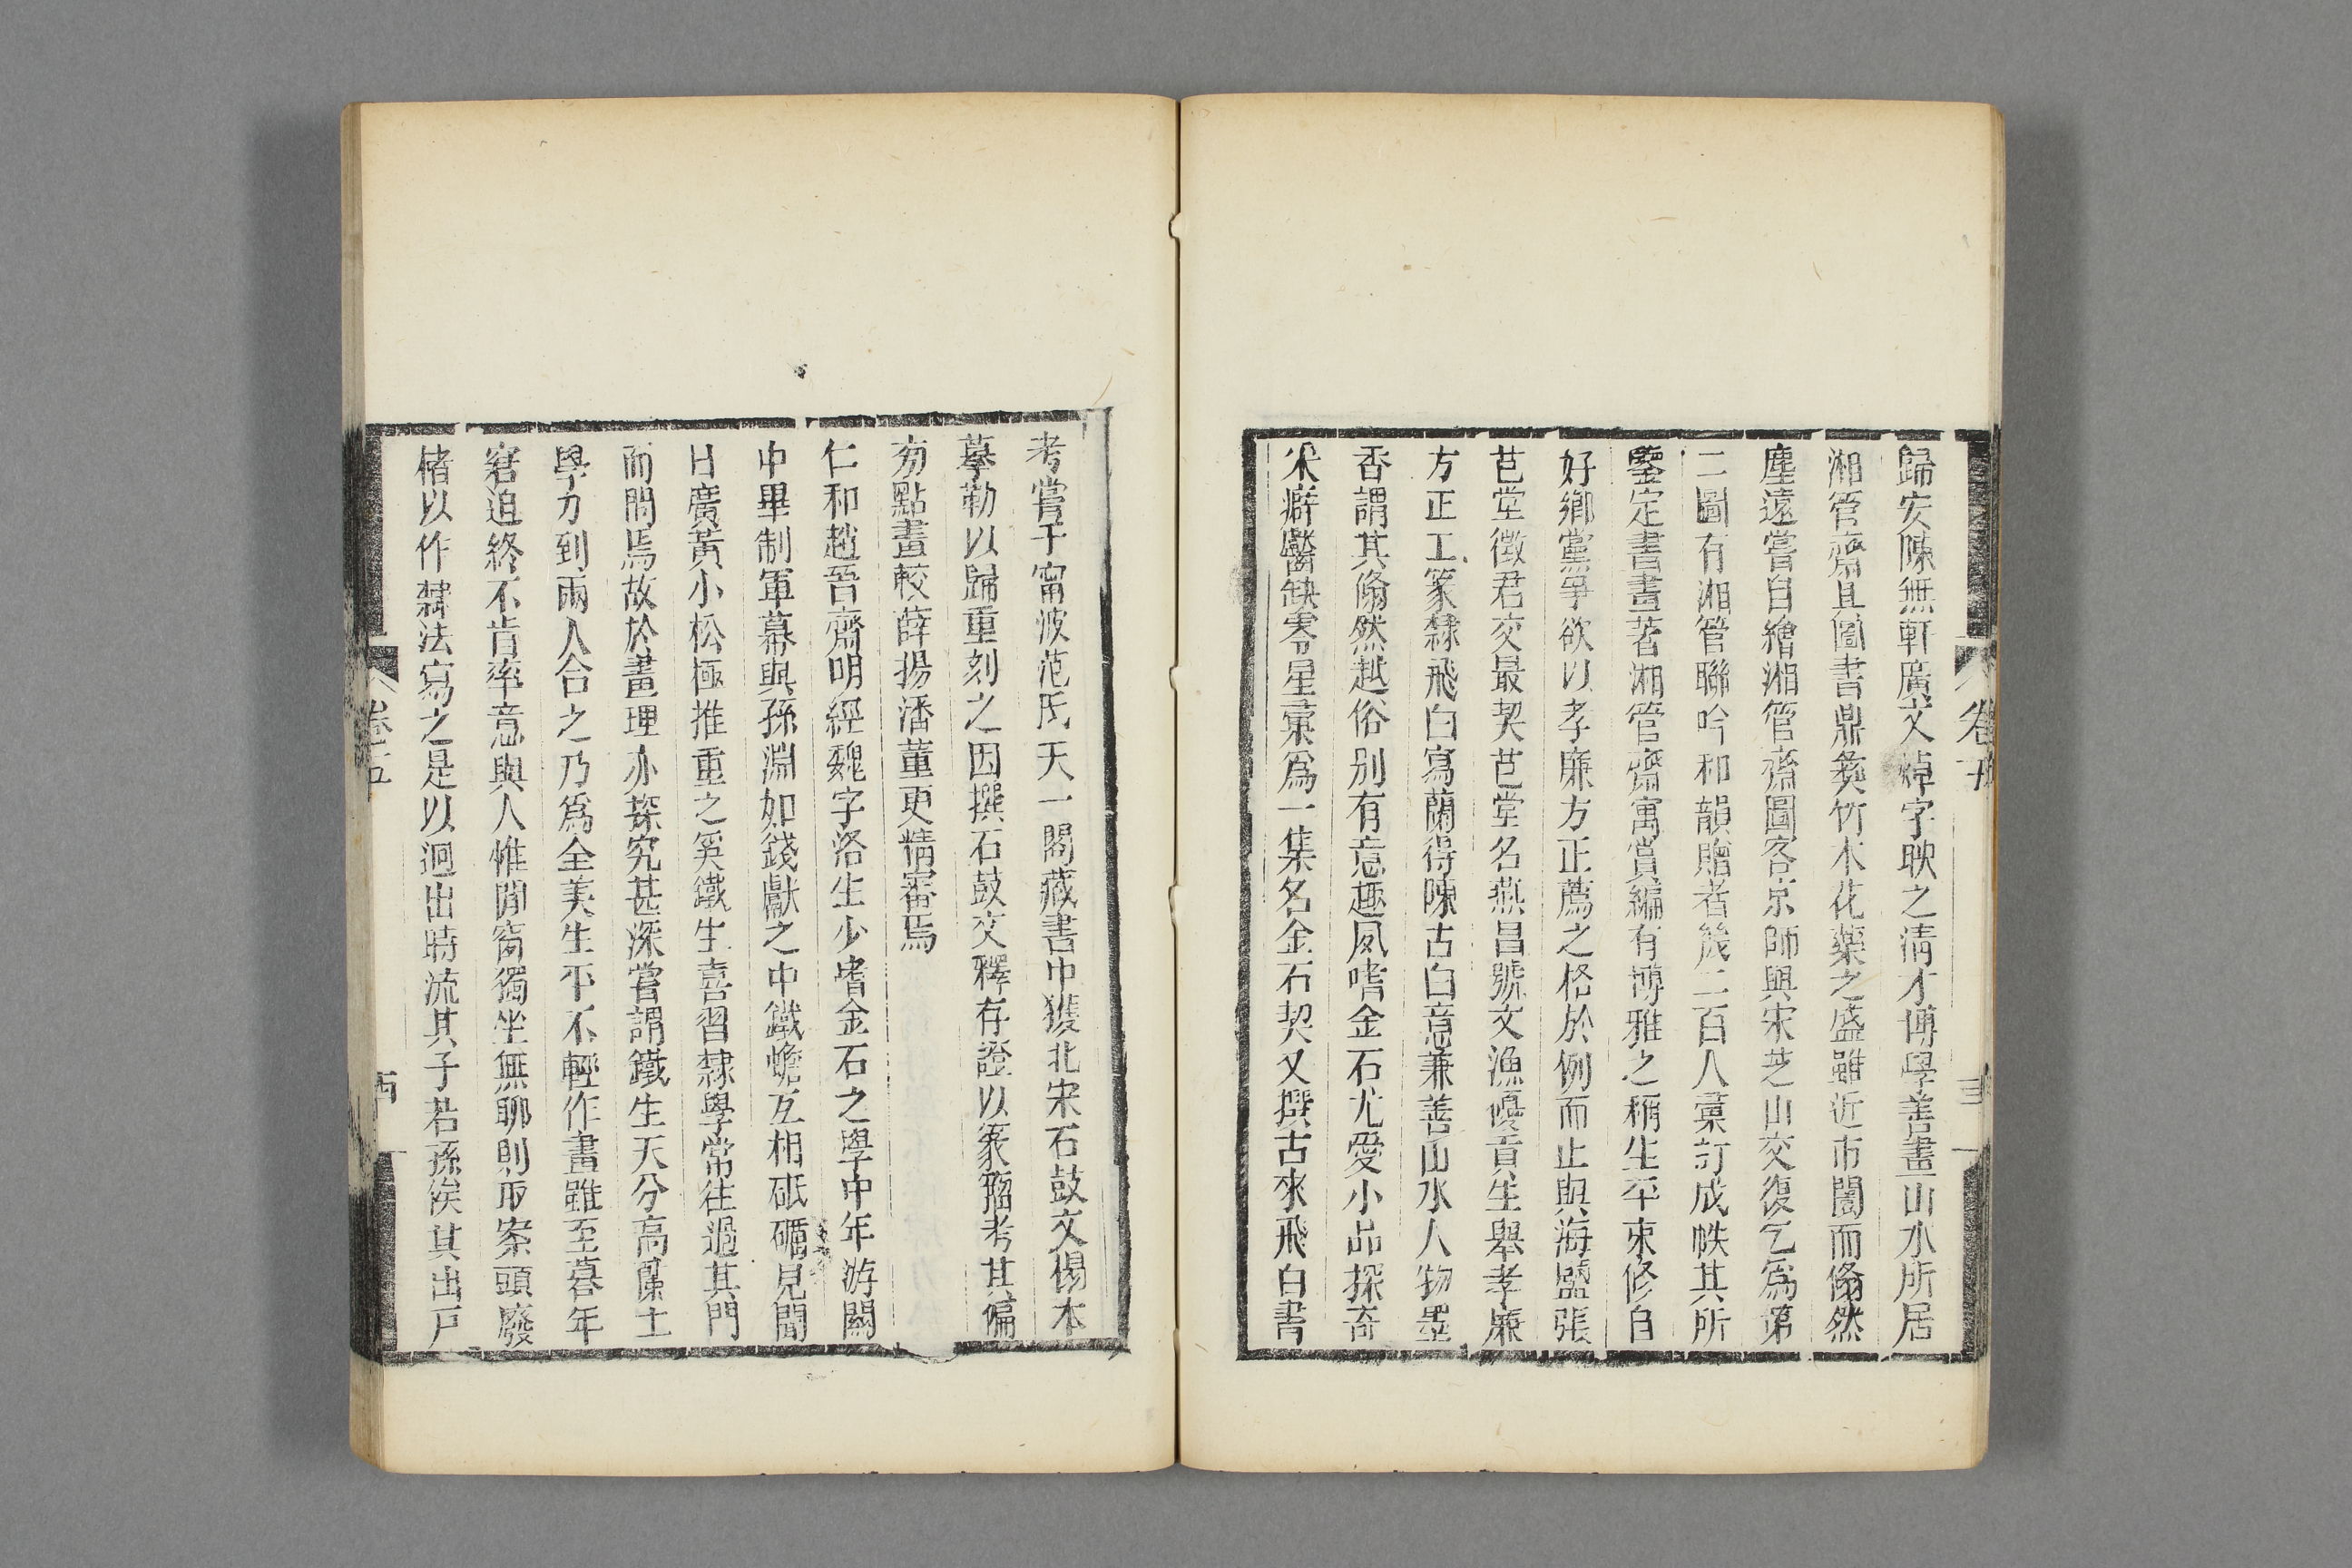 歸安陳無軒廣文焯字映之清才博學善畫山水所居
湘管齋具圖書鼎彝竹木花藥之盛雖近市闤而翛然
塵遠嘗自繪湘管齋圖客京師與宋芝山交復乞爲第
二圖有湘管聯吟和韻贈者幾二百人彙訂成帙其所
鑒定書畫著湘管齋寓賞編有博雅之稱生平束修自
好鄉黨爭欲以孝廉方正薦之格於例而止與海鹽張
芑堂徵君交最契芑堂名燕昌號文漁優貢生舉孝廉
方正工篆隸飛白寫蘭得陳古白意兼善山水人物墨
香謂其翛然越俗别有意趣夙嗜金石尤愛小品探奇
釆癖斷缺零星彙爲一集名金石契又撰古來飛白書
卷五
考嘗于甯波范氏天一閣藏書中獲北宋石鼓文榻本
摹勒以歸重刻之因撰石鼓文釋存證以篆籀考其偏
旁點畫較薛揚潘董更精審焉
仁和趙晉齋明經魏字洛生少嗜金石之學中年游關
中畢制軍幕與孫淵如錢獻之申鐵蟾互相砥礪見聞
日廣黃小松極推重之奚鐵生喜習隸學常往過其門
而問焉故於畫理亦探究甚深嘗謂鐵生天分高蘭士
學力到兩人合之乃爲全美生平不輕作畫雖至暮年
窘迫終不肯率意與人惟閒窗獨坐無聊則取案頭廢
楮以作隸法寫之是以迥出時流其子若孫俟其出戸
卷五